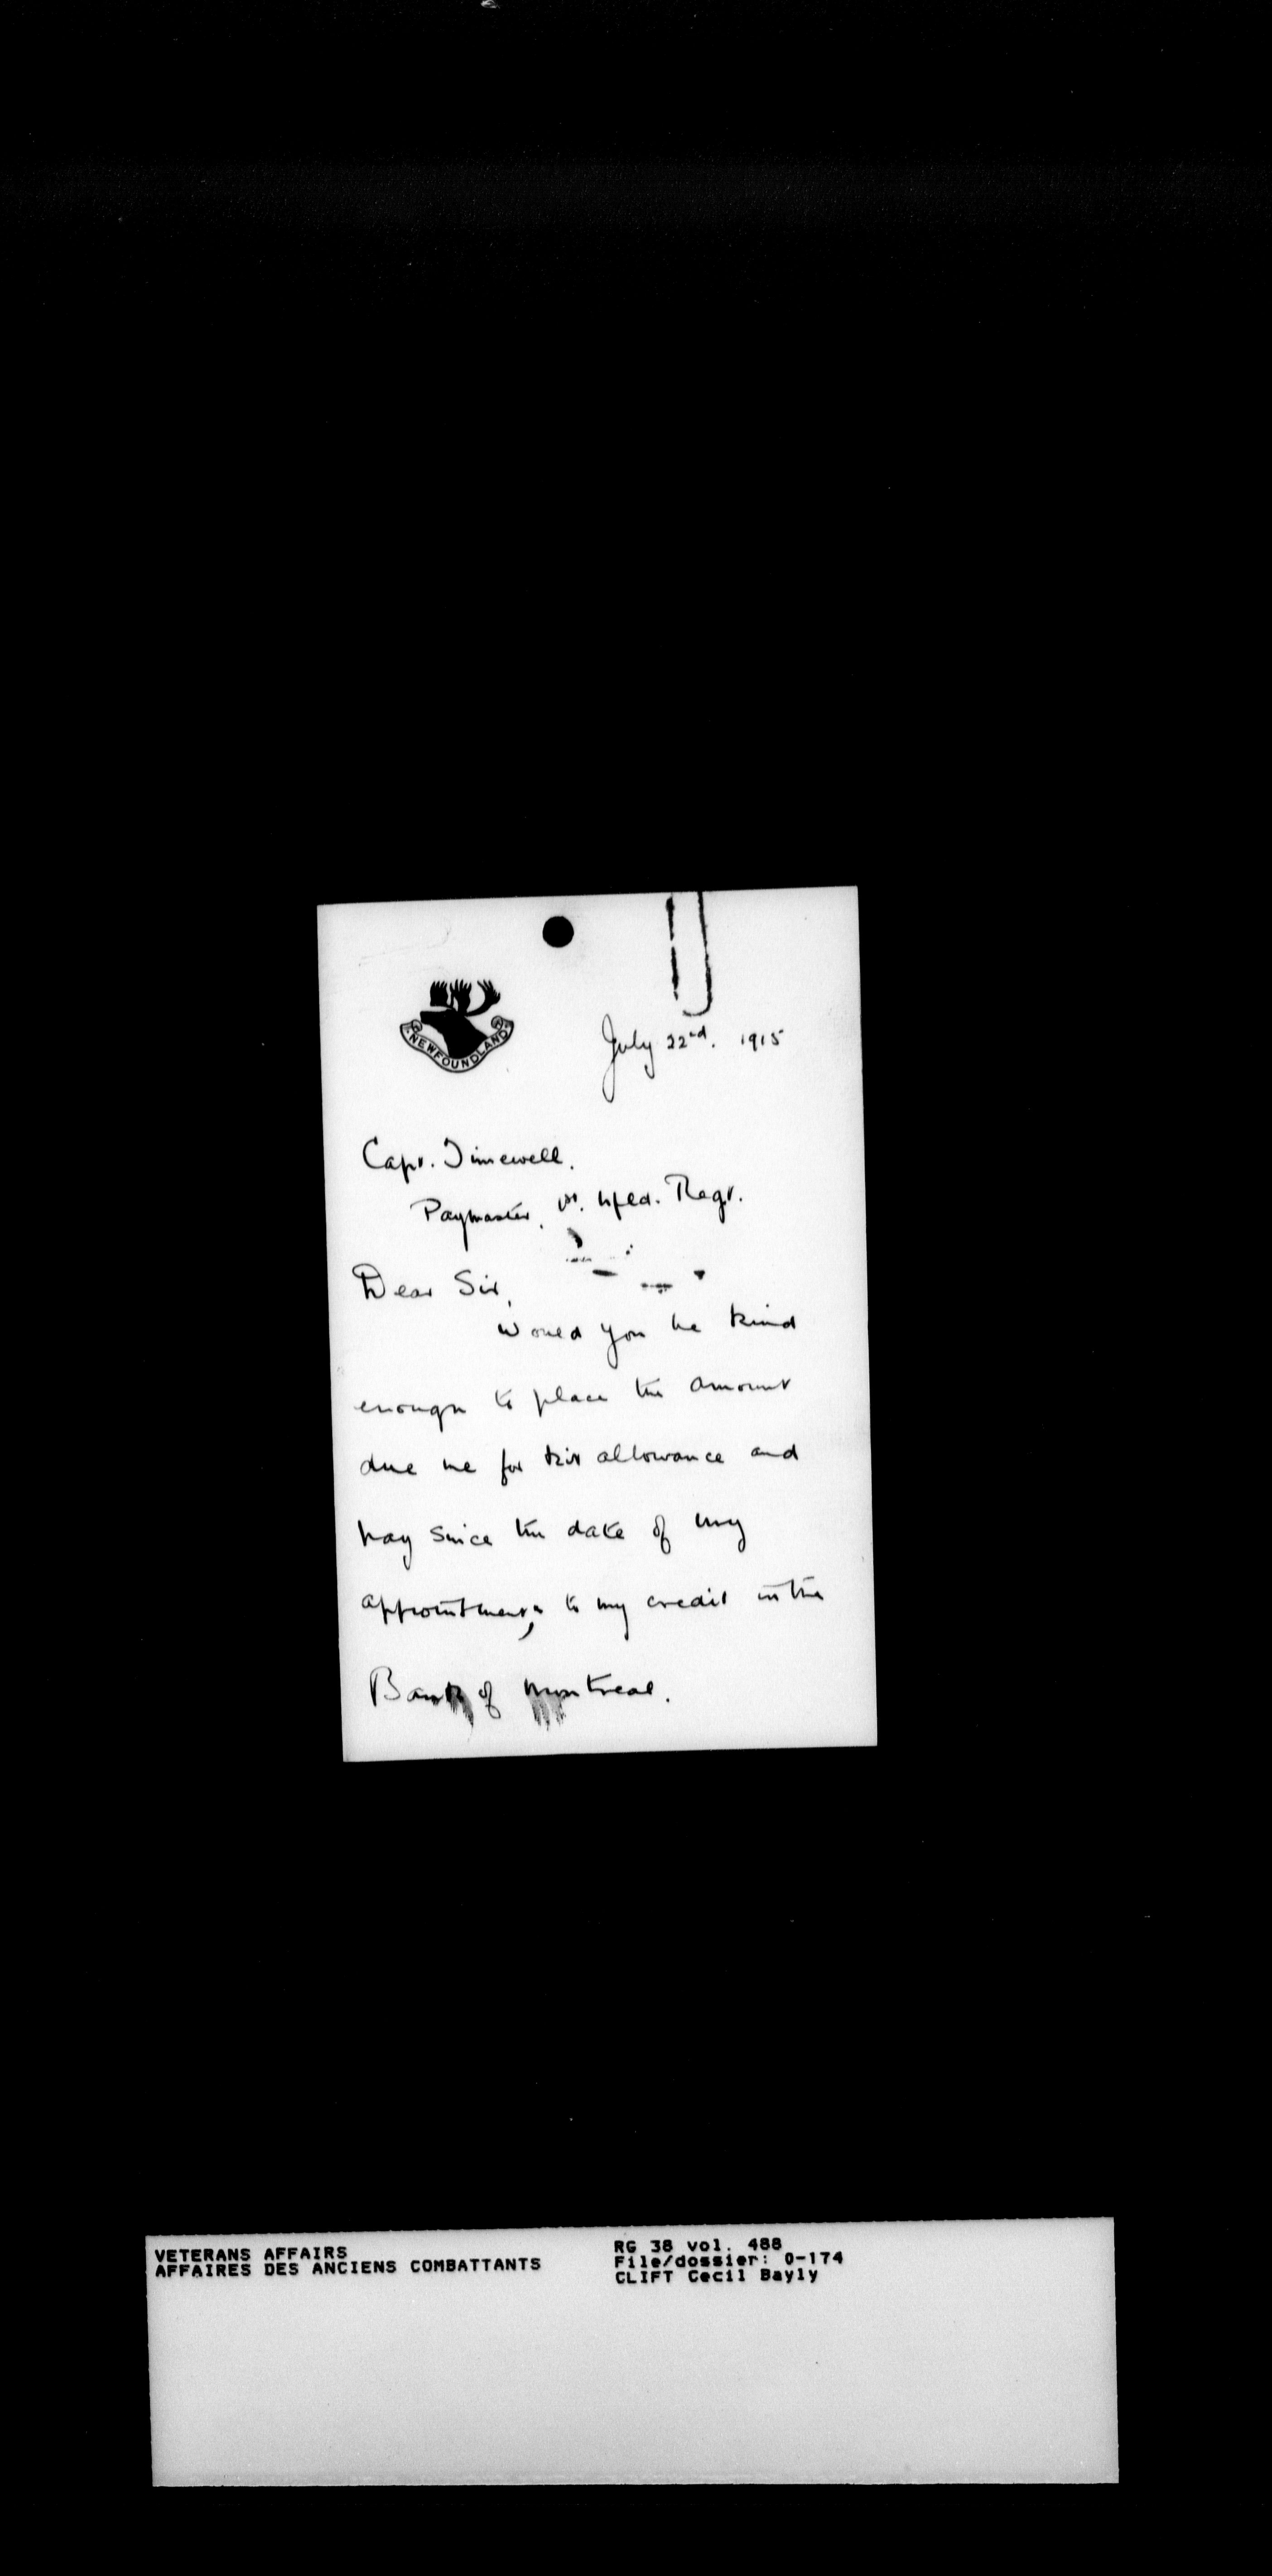 NEWFOUNDLAND
July 22nd. 1915
Capt. Timewell.
Paymaster, 1st. Nfld. Regt.
Dear Sir,
Would you be kind
enough to place the amount
due me for kit allowance and
pay since the date of my
appointment, to my credit in the
Bank of Montreal.
VETERANS AFFAIRS
AFFAIRES DES ANCIENS COMBATTANTS
RG 38 vol. 488
File/dossier: 0-174
CLIFT Cecil Bayly